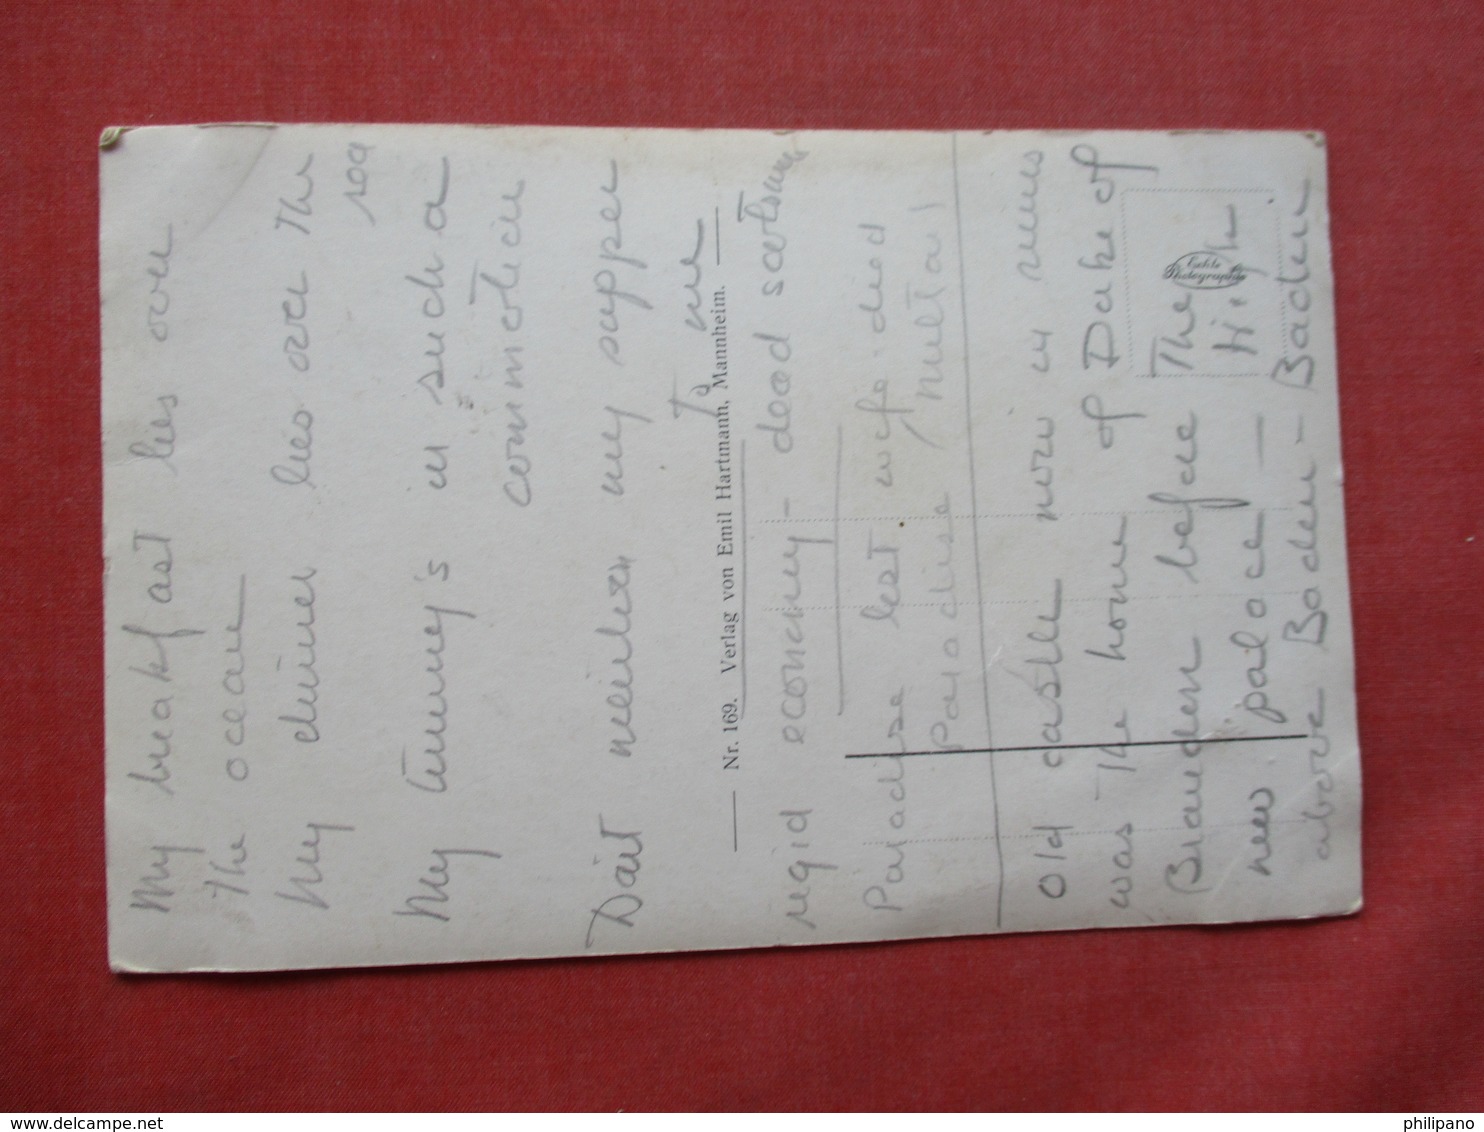 My breakfast lies over
the ocean
My dinner lies over the
sea
My tummy's in such a
commotion
Don't mention my supper
to me
Nr. 169. Verlag von Emil Hartmann, Mannheim.
rigid economy - dead
Paradise lost wife died
Paradise
Old castle now in ruins
was the home of Duke of
before The
High
new palace -
above Baden - Baden
Echte Photographie
philipano